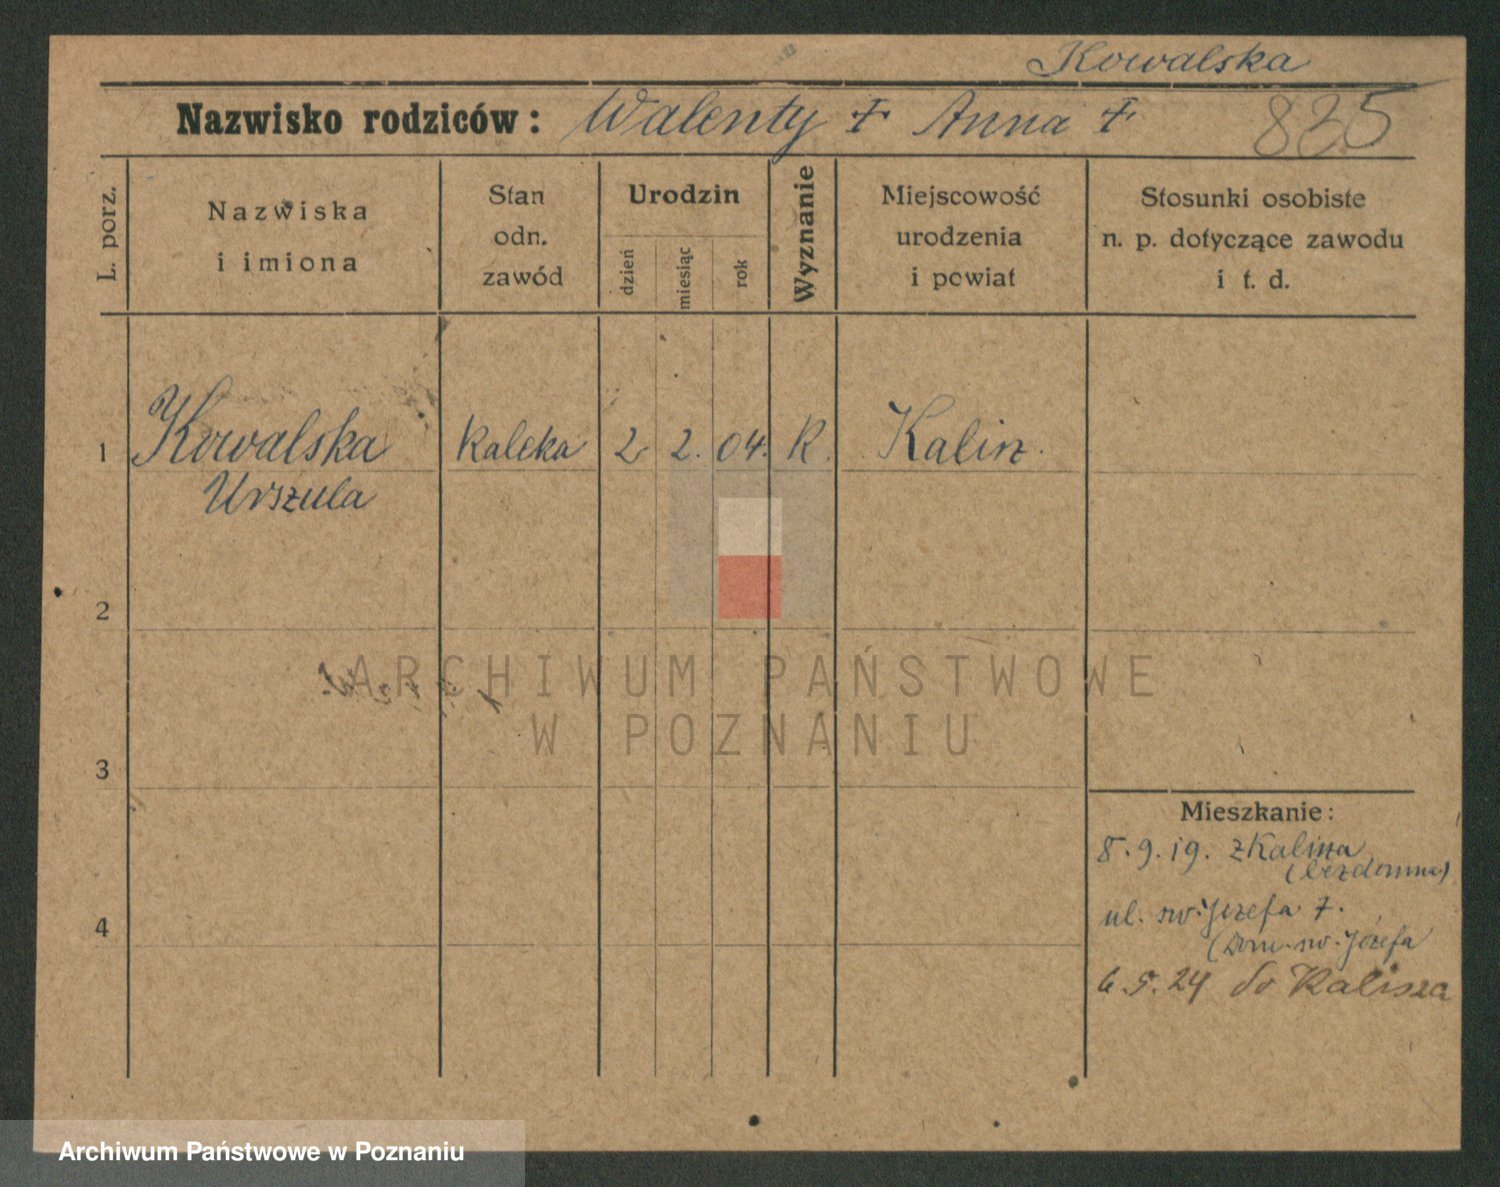 Kowalska
Nazwisko rodziców: Walenty + Anna + 825
L. porz.
Nazwiska
i imiona
Stan
odn.
zawód
Urodzin
dzień
miesiąc
rok
Wyznanie
Miejscowość
urodzenia
i powiat
Stosunki osobiste
n. p. dotyczące zawodu
i t. d.
1 Kowalska Kaleka 2 2. 04. R. Kalisz.
Urszula
2
ARCHIWUM PAŃSTWOWE
W POZNANIU
3
Mieszkanie:
8.9.19. z Kalisza
(bezdomna)
4
ul. św. Józefa 7.
(Dom. św. Józefa
6.5.24 do Kalisza
Archiwum Państwowe w Poznaniu